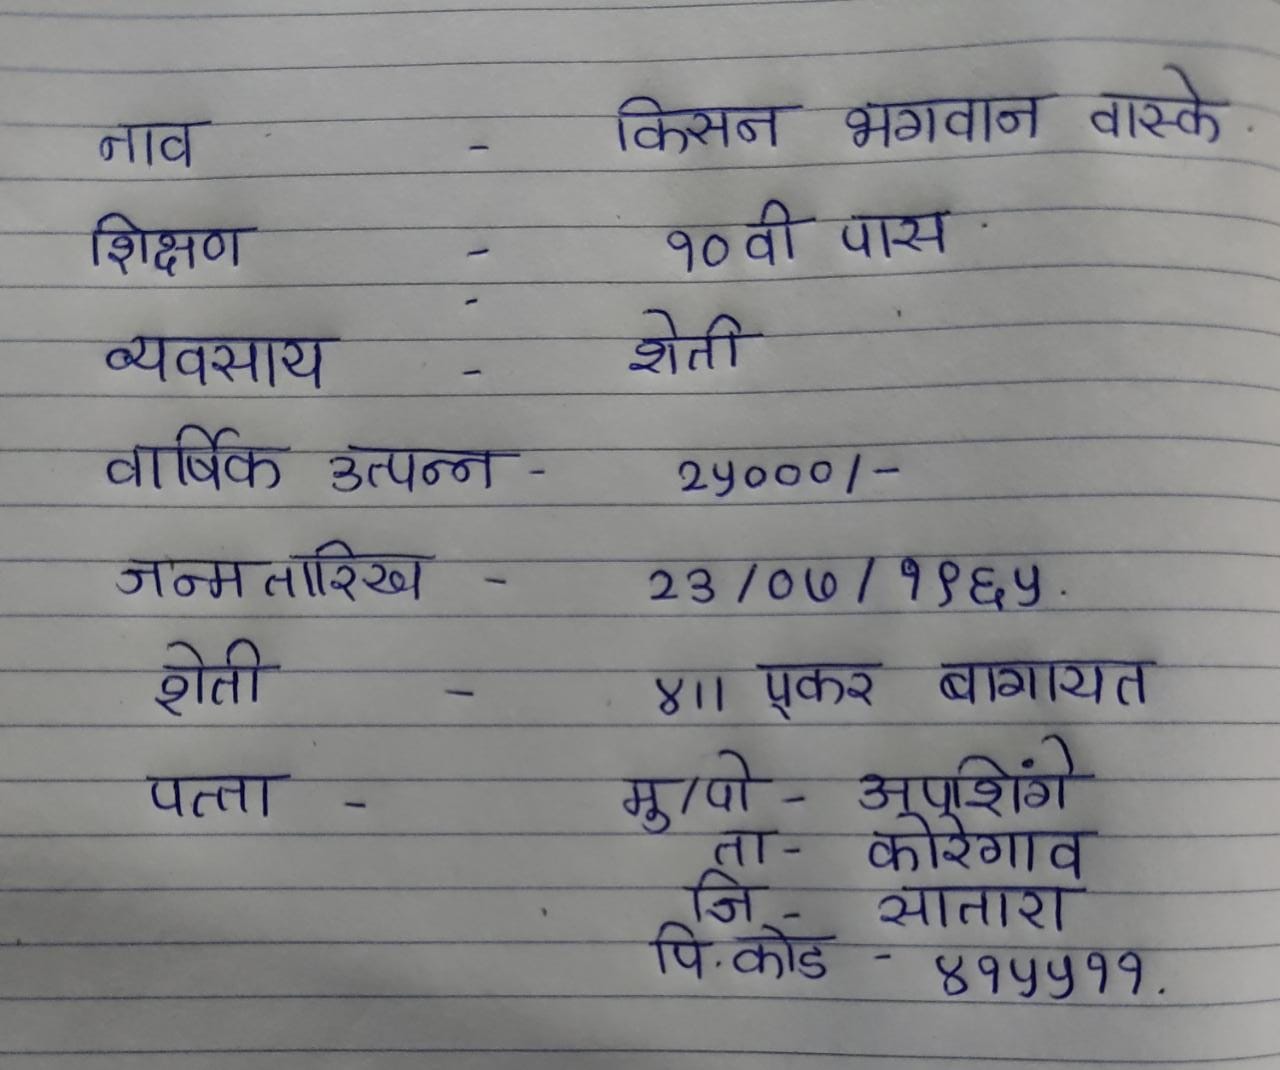 नाव - किसन भगवान वास्के.
शिक्षण - १० वी पास
व्यवसाय - शेती
वार्षिक उत्पन्न - २५०००/-
जन्मतारिख - २३/०७/१९६५.
शेती - ४॥ एकर बागायत
पत्ता - मु/पो - अपुशिंगे
ता - कोरेगाव
जि - सातारा
पि. कोड - ४१५५११.